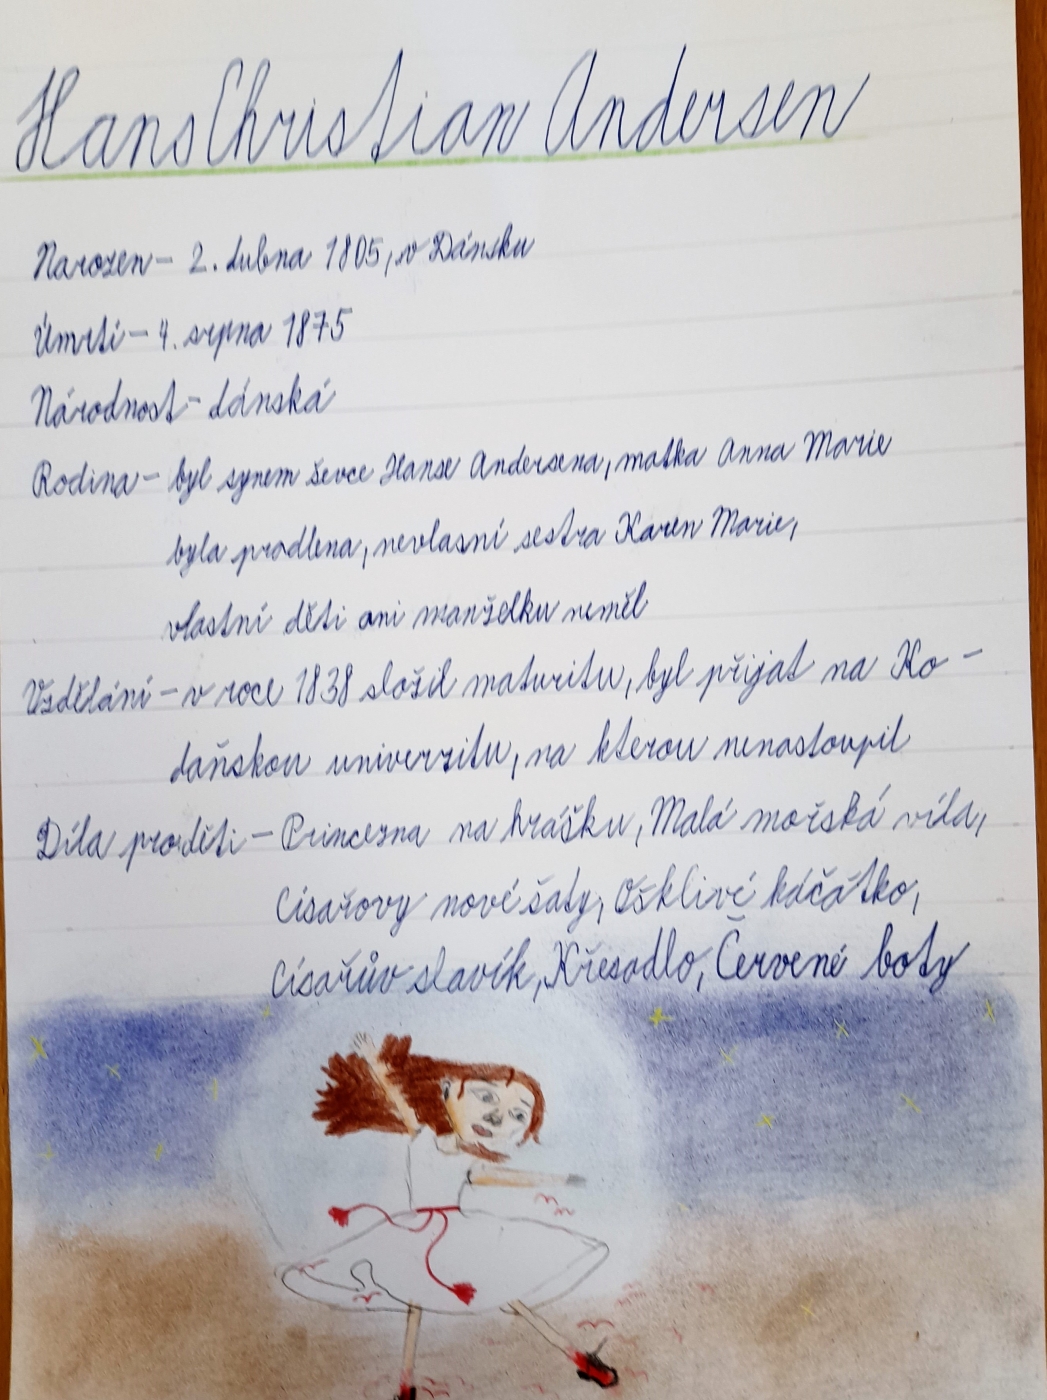 Hans Christian Andersen
Narozen – 2. dubna 1805, v Dánsku
Úmrtí – 4. srpna 1875
Národnost – dánská
Rodina – byl synem ševce Hanse Andersena, matka Anna Marie
byla pradlena, nevlasní sestra Karen Marie,
vlastní děti ani manželku neměl
Vzdělání – v roce 1838 složil maturitu, byl přijat na Ko-
daňskou univerzitu, na kterou nenastoupil
Díla pro děti – Princezna na hrášku, Malá mořská víla,
Císařovy nové šaty, Ošklivé káčátko,
Císařův slavík, Křesadlo, Červené boty